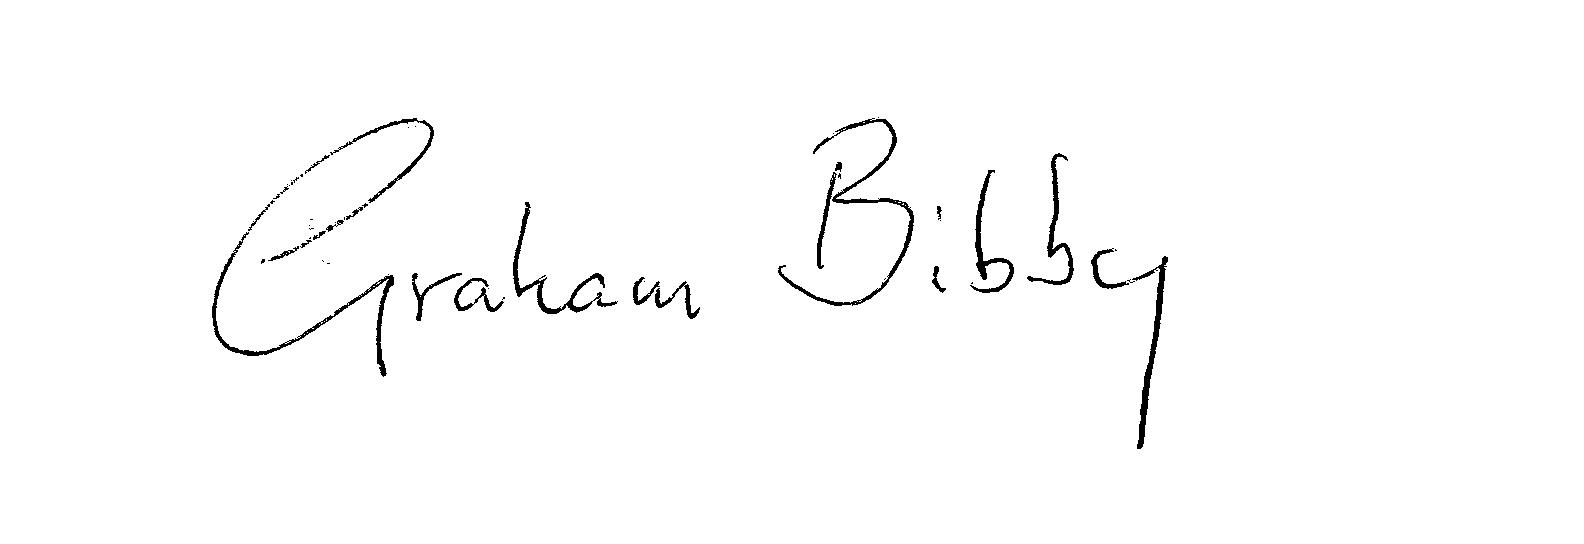 Graham Bibby